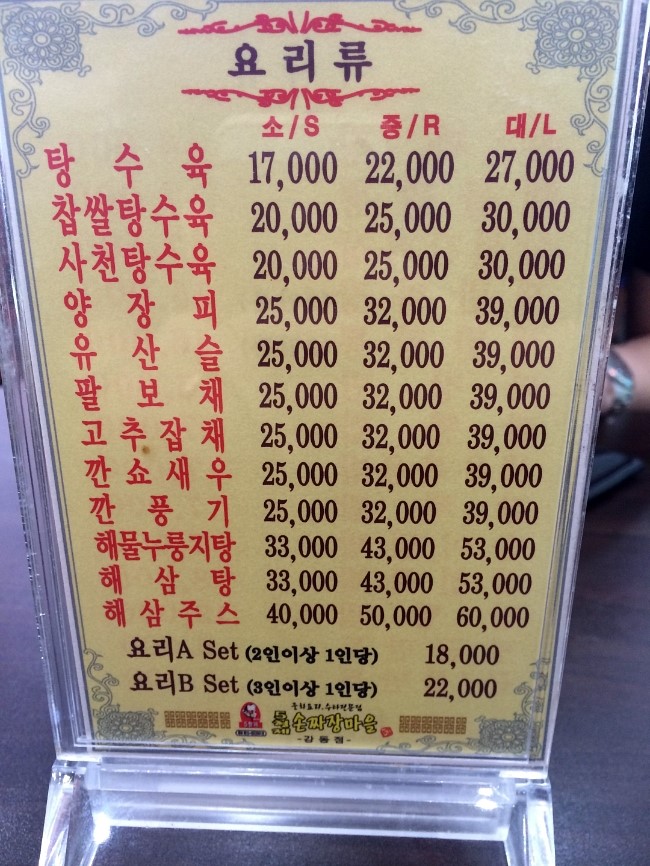 요리류
소/S 중/R 대/L
탕수육 17,000 22,000 27,000
찹쌀탕수육 20,000 25,000 30,000
사천탕수육 20,000 25,000 30,000
양장피 25,000 32,000 39,000
유산슬 25,000 32,000 39,000
팔보채 25,000 32,000 39,000
고추잡채 25,000 32,000 39,000
깐쇼새우 25,000 32,000 39,000
깐풍기 25,000 32,000 39,000
해물누룽지탕 33,000 43,000 53,000
해삼탕 33,000 43,000 53,000
해삼주스 40,000 50,000 60,000
요리A Set (2인이상 1인당) 18,000
요리B Set (3인이상 1인당) 22,000
손짜장마을
-강동점-